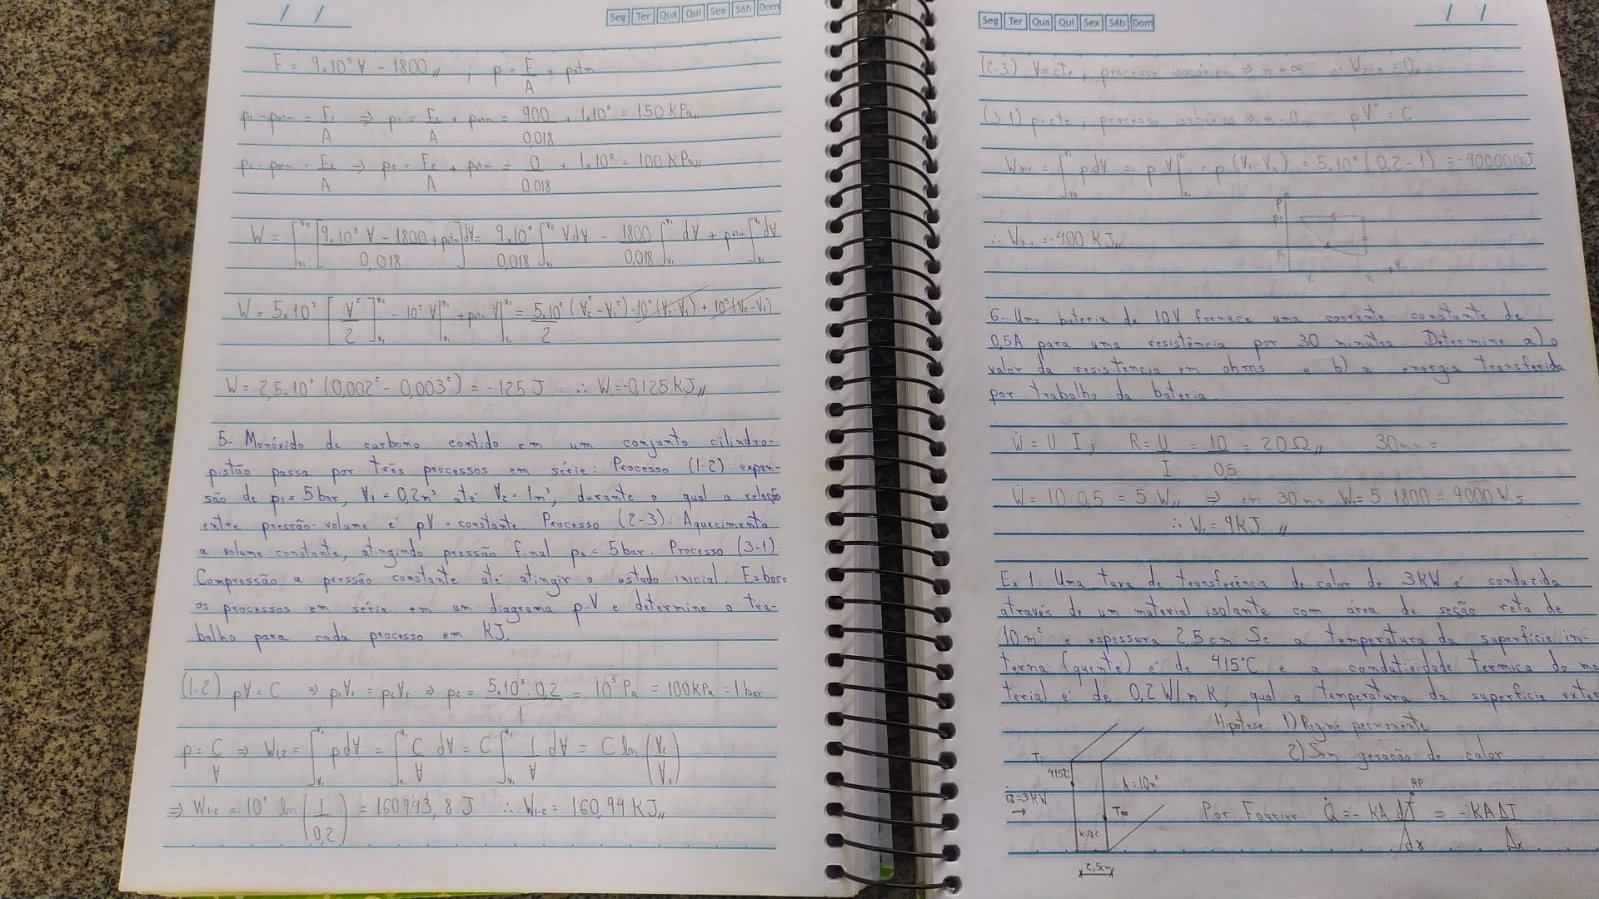 / /
Seg Ter Qua Qui Sex Sáb Dom
F = 9.10⁵ V - 1800,, ; p = F/A + patm
p₁ - patm = F₁/A ⇒ p₁ = F₁/A + patm = 900/0,018 + 1.10⁵ = 150 KPa,,
p₂ - patm = F₂/A ⇒ p₂ = F₂/A + patm = 0/0,018 + 1.10⁵ = 100 KPa,,
W = ∫ [9.10⁵ V - 1800/0,018 + patm] dV = 9.10⁵/0,018 ∫ V dV - 1800/0,018 ∫ dV + patm ∫ dV
W = 5.10⁷ [V²/2] - 10⁵ V| + patm V| = 5.10⁷/2 (V₂² - V₁²) - 10⁵ (V₂-V₁) + 10⁵ (V₂-V₁)
W = 2,5.10⁷ (0,002² - 0,003²) = -125 J ∴ W = -0,125 KJ,,
5- Monóxido de carbono contido em um conjunto cilindro-
pistão passa por três processos em série: Processo (1-2): expan-
são de p₁ = 5 bar, V₁ = 0,2 m³ até V₂ = 1 m³, durante o qual a relação
entre pressão-volume é pV = constante. Processo (2-3): Aquecimento
a volume constante, atingindo pressão final p₃ = 5 bar. Processo (3-1):
Compressão a pressão constante até atingir o estado inicial. Esboce
os processos em série em um diagrama p-V e determine o tra-
balho para cada processo em KJ.
(1-2) pV = C ⇒ p₁V₁ = p₂V₂ ⇒ p₂ = 5.10⁵ . 0,2/1 = 10⁵ Pa = 100 KPa = 1 bar
p = C/V ⇒ W₁₋₂ = ∫ p dV = ∫ C/V dV = C ∫ 1/V dV = C ln (V₂/V₁)
⇒ W₁₋₂ = 10⁵ ln (1/0,2) = 160943,8 J ∴ W₁₋₂ = 160,94 KJ,,
Seg Ter Qua Qui Sex Sáb Dom
/ /
(2-3) V = cte, processo isocórico ⇒ n = ∞ ∴ W₂₋₃ = 0,,
(3-1) p = cte; processo isobárico ⇒ n = 0, pV⁰ = C
W₃₋₁ = ∫ p dV = p V| = p (V₁ - V₃) = 5.10⁵ (0,2 - 1) = -400000 J
∴ W₃₋₁ = -400 KJ,,
6- Uma bateria de 10V fornece uma corrente constante de
0,5A para uma resistência por 30 minutos. Determine a) o
valor da resistência em ohms e b) a energia transferida
por trabalho da bateria.
Ẇ = U I ; R = U/I = 10/0,5 = 20 Ω,, 30 min =
Ẇ = 10 . 0,5 = 5 W,, ⇒ em 30 min W = 5 . 1800 = 9000 W.s
∴ W = 9 KJ,,
Ex 1: Uma taxa de transferência de calor de 3 KW é conduzida
através de um material isolante com área de seção reta de
10 m² e espessura 2,5 cm. Se a temperatura da superfície in-
terna (quente) é de 415°C e a condutividade térmica do ma
terial é de 0,2 W/m K, qual a temperatura da superfície exter
Hipótese: 1) Regime permanente
2) Sem geração de calor
T₁
415°C
A = 10 m²
Q̇ = 3 KW
→
T∞
k=0,2
2,5cm
RP
Por Fourier Q̇ = - KA dT/dx = - KA ΔT/Δx